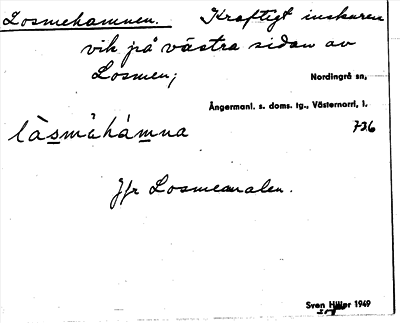 Losmehamnen. Kraftigt inskuren
vik på västra sidan av
Losmen;
Nordingrå sn,
Ångermanl. s. doms. tg., Västernorrl. l.
làsmåhámna
736
Jfr Losmemalen.
Sven Hiller 1949